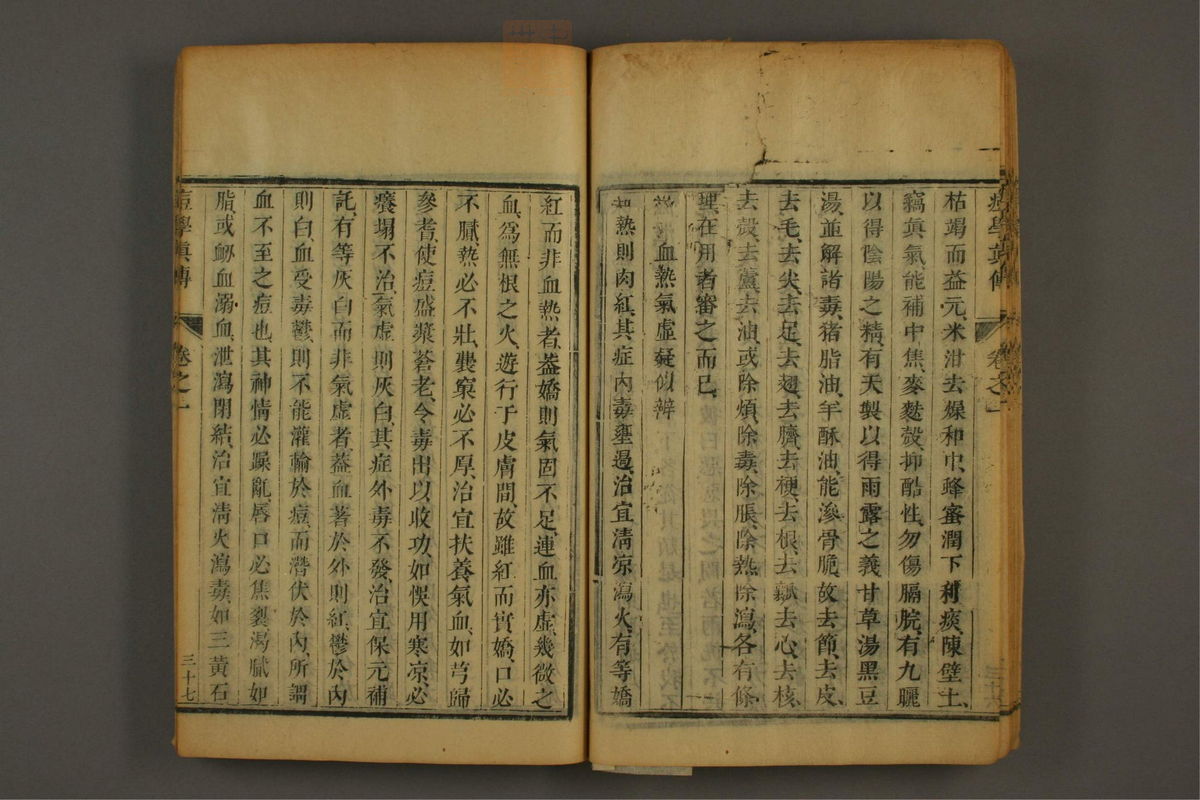 枯竭而益元、米泔去燥和中、蜂蜜潤下利痰、陳壁土、
竊真氣能補中焦、麥麩殼抑酷性、勿傷膈脘、有九曬
以得陰陽之精、有天製以得雨露之義、甘草湯、黑豆
湯、並解諸毒、猪脂油、羊酥油、能滲骨脆、故去節、去皮、
去毛、去尖、去足、去翅、去臍、去梗、去根、去瓤、去心、去核、
去殼、去蘆、去油、或除煩、除毒、除脹、除熱、除瀉、各有條
理、在用者審之而已、
血熱氣虛疑似辨
熱則肉紅、其症內毒壅遏、治宜清凉瀉火、有等嬌
紅而非血熱者、葢嬌則氣固不足、連血亦虛、幾微之
血、為無根之火、遊行于皮膚間、故雖紅而實嬌、口必
不膩、熱必不壯、裝窠必不厚、治宜扶養氣血、如芎歸
參耆、使痘盛漿蒼老、令毒出以收功、如悞用寒凉、必
癢塌不治、氣虛則灰白、其症外毒不發、治宜保元補
託、有等灰白而非氣虛者、葢血著於外則紅、鬱於內
則白、血受毒鬱、則不能灌輸於痘、而潛伏於內、所謂
血不至之痘也、其神情必躁亂、唇口必焦裂渴膩、如
脂或衂血溺血、泄瀉閉結、治宜清火瀉毒、如三黃石
痘學真傳
卷之一
三十七